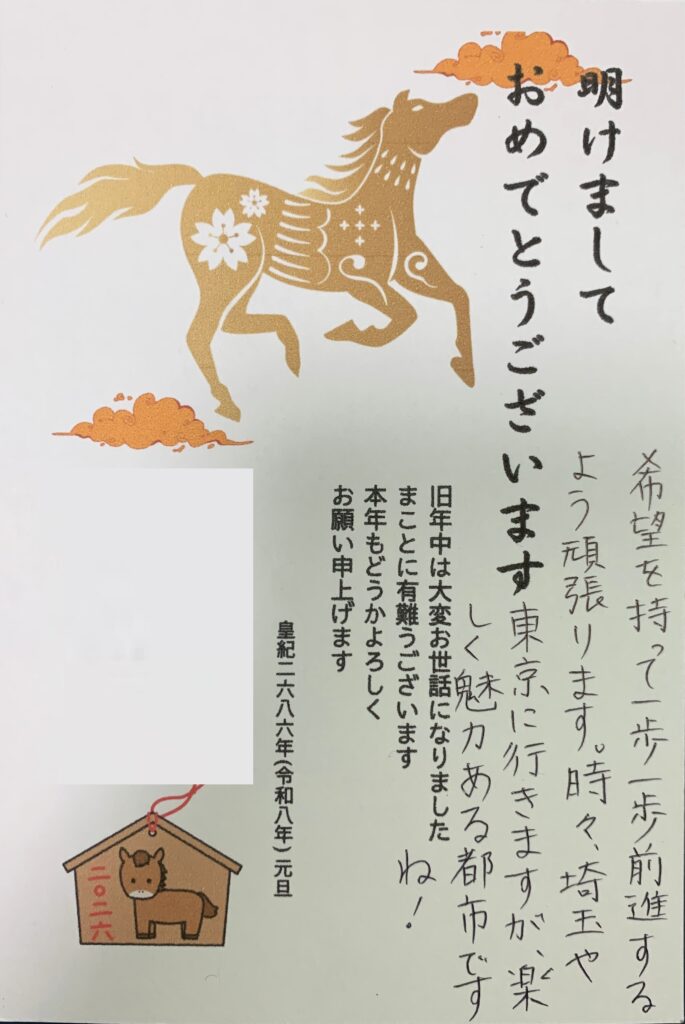 明けまして
おめでとうございます
希望を持って一歩一歩前進する
よう頑張ります。時々、埼玉や
東京に行きますが、楽
しく魅力ある都市です
ね!
旧年中は大変お世話になりました
まことに有難うございます
本年もどうかよろしく
お願い申上げます
皇紀二六八六年(令和八年)元旦
二〇二六